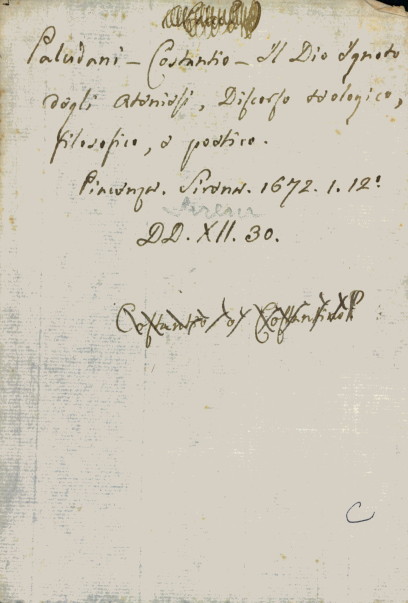 Paludani - Costantio - Il Dio Ignoto
degli Ateniesi, Discorso teologico,
filosofico, e poetico.
Piacenza. Sirena. 1672. 1. 12°
DD. XII. 30.
C